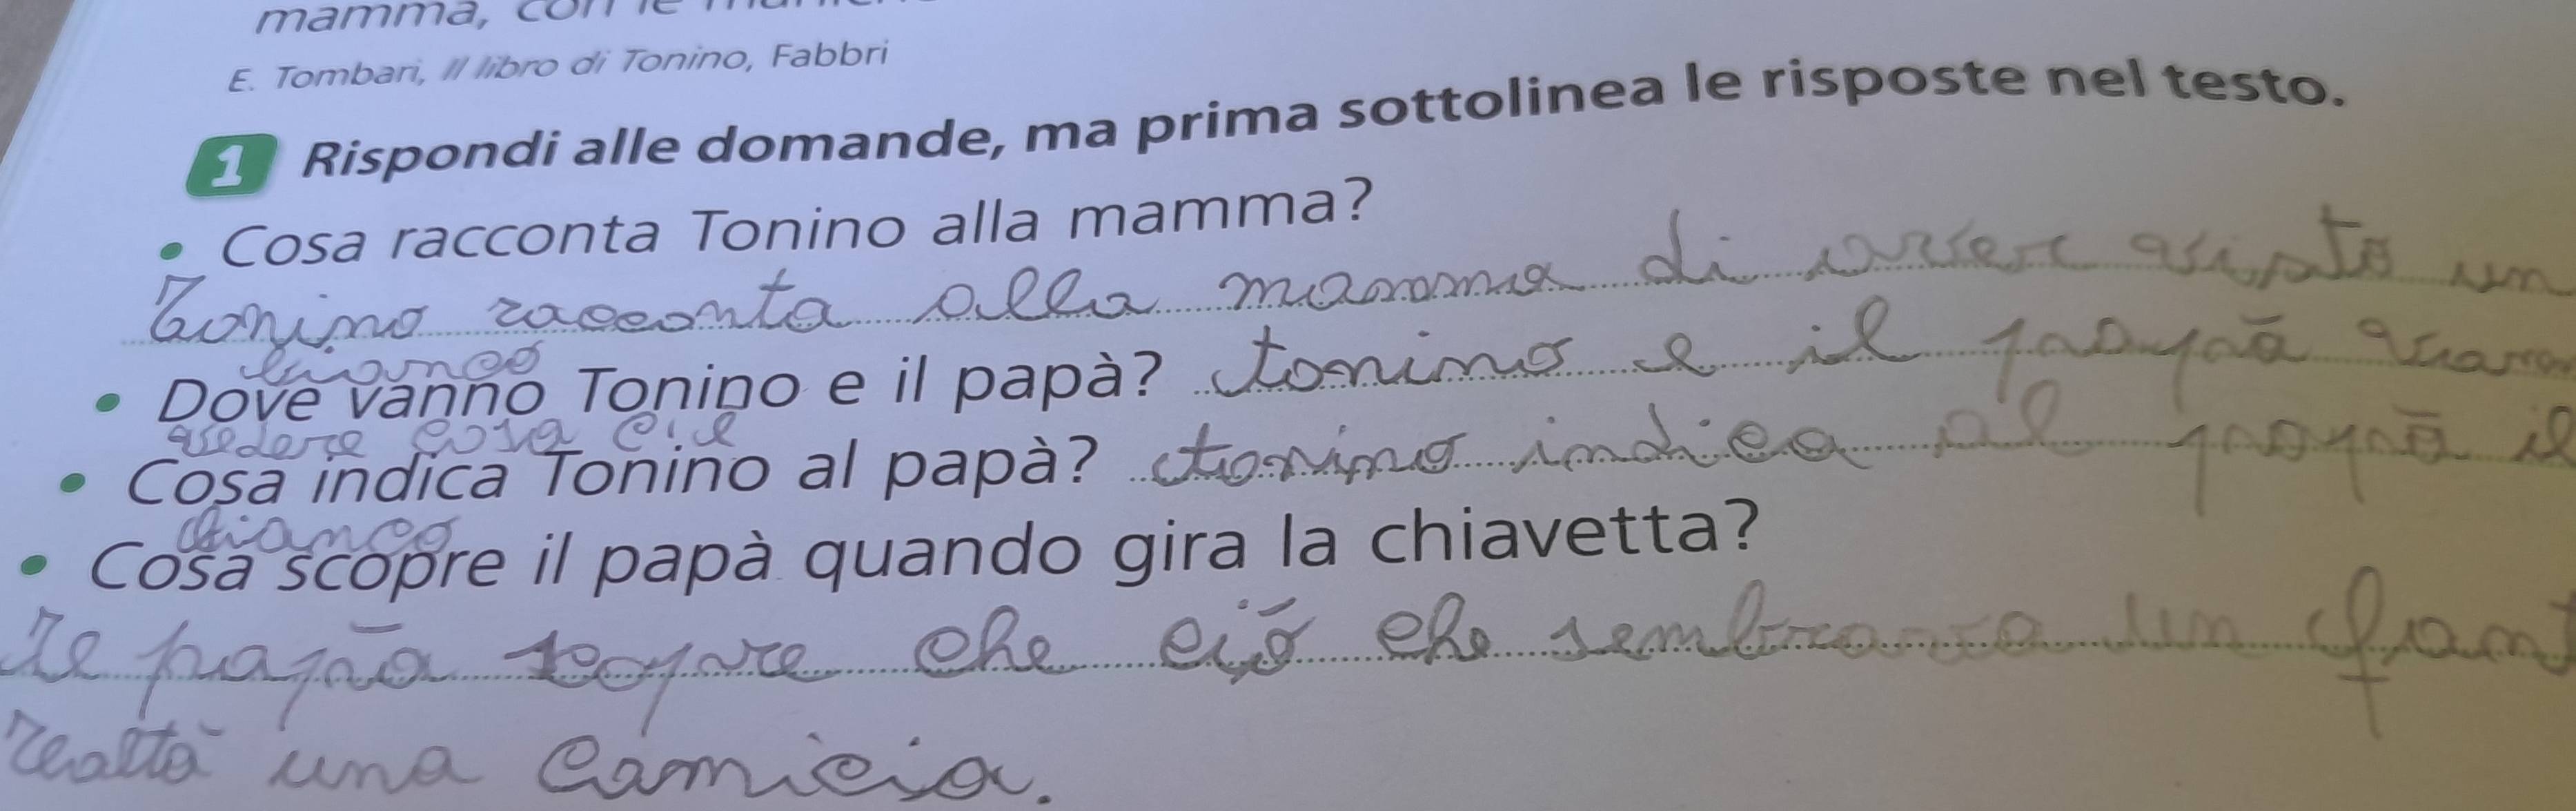 mamma, con le
E. Tombari, Il libro di Tonino, Fabbri
1 Rispondi alle domande, ma prima sottolinea le risposte nel testo.
• Cosa racconta Tonino alla mamma?
Tonino racconta alla mamma di aver visto un
bianco
• Dove vanno Tonino e il papà? tonino e il papà vanno
vedere cosa c'è
• Cosa indica Tonino al papà? tonino indica al papà il
bianco
• Cosa scopre il papà quando gira la chiavetta?
Il papà scopre che ciò che sembrava un
realtà una camicia.